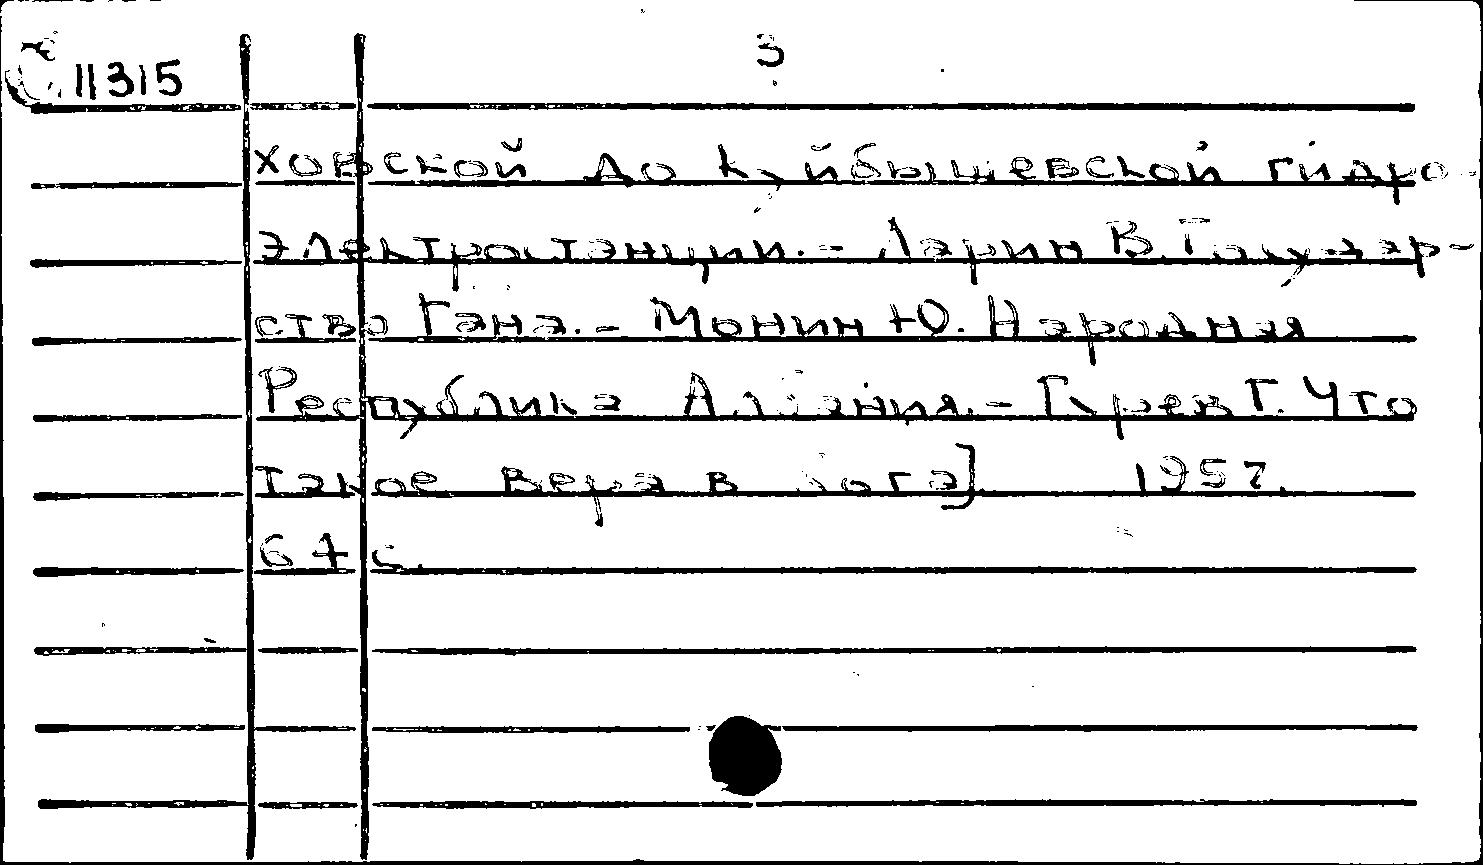 3
11315
ховской до Куйбышевской гидро-
электростанции. - Ларин В. Государ-
ство Гана. - Монин Ю. Народная
Республика Албания. - Гурев Г. Что
такое вера в бога] 1957.
64 с.